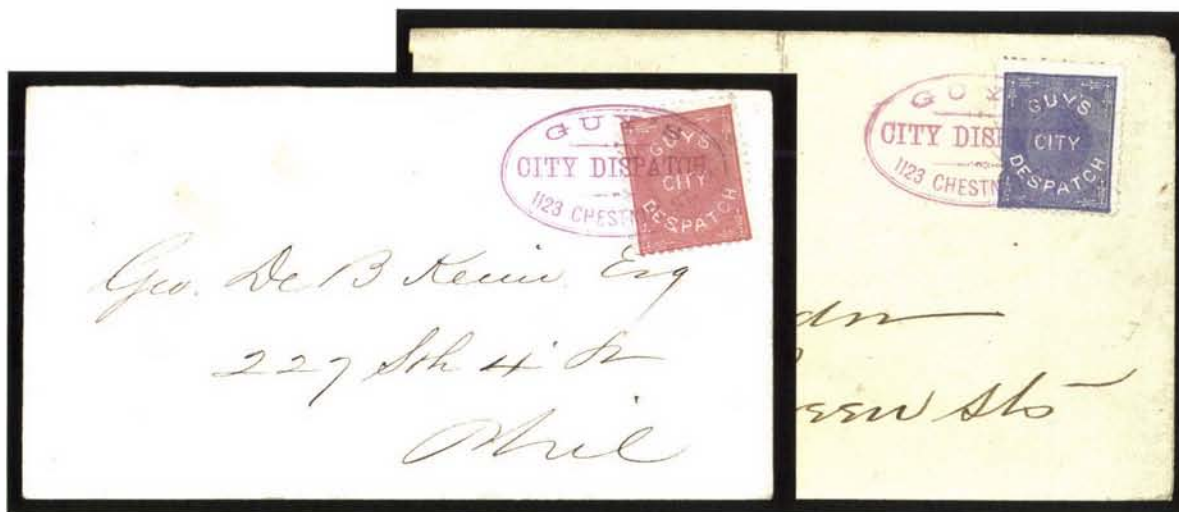 GUY'S
CITY DISPATCH
1123 CHESTN
GUY'S
CITY
DESPATCH
Geo. De B Keim Esq
227 Sth 4 St
Phil
GUY
CITY DISP
1123 CHESTN
GUY'S
CITY
DESPATCH
een Sts